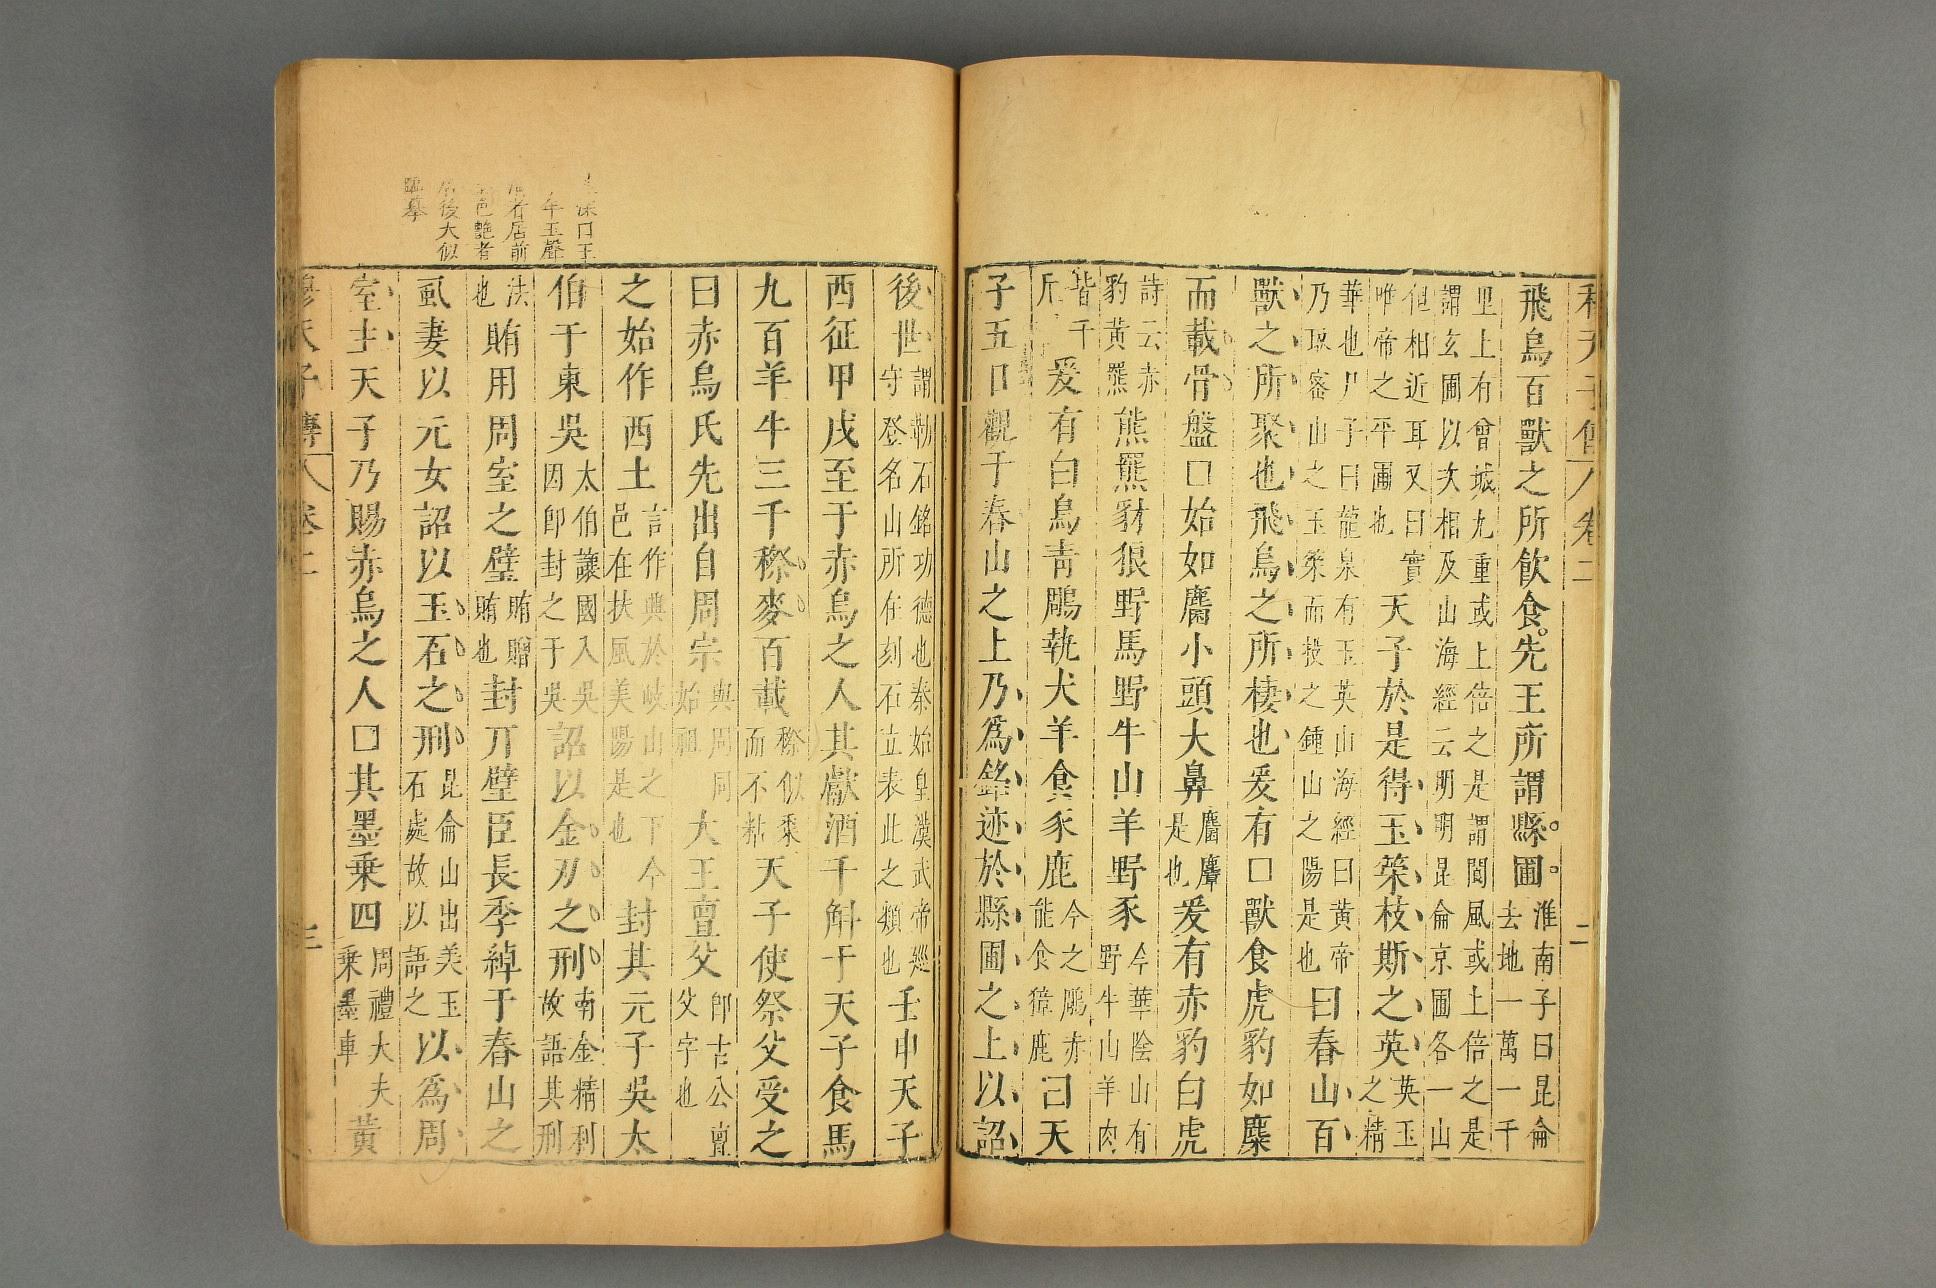 飛鳥百獸之所飲食。先王所謂縣。圃。淮南子曰昆侖去地一萬一千
里上有曾城九重或上倍之是謂閬風或上倍之是謂玄圃以次相及山海經云明明昆侖京圃各一山
但相近耳又曰實唯帝之平圃也天子於是得玉䇿枝斯之英英玉之精
華也尸子曰龍泉有玉英山海經曰黃帝乃取密山之玉䇿而投之鍾山之陽是也曰春山百
獸之所聚也飛鳥之所棲也爰有口獸食虎豹如麋
而載骨盤口始如麕小頭大鼻麕麞是也爰有赤豹白虎
詩云赤豹黃羆熊羆豺狼野馬野牛山羊野豕今華陰山有野牛山羊肉
皆千斤爰有白鳥青鵰執犬羊食豕鹿今之鵰亦能食獐鹿曰天
子五日觀于春山之上乃為銘迹於縣圃之上以詔
後世謂勒石銘功德也秦始皇漢武帝巡守登名山所在刻石立表此之類也壬申天子
西征甲戌至于赤烏之人其獻酒千斛于天子食馬
九百羊牛三千穄麥百載穄似黍而不粘天子使祭父受之
曰赤烏氏先出自周宗與周同始祖大王亶父即古公亶父字也
之始作西土言作興於岐山之下今邑在扶風美陽是也封其元子吳太
伯于東吳太伯讓國入吳因即封之于吳詔以金刃之刑南金精利故語其刑
法也賄用周室之璧賄贈賄也封丌璧臣長季綽于春山之
虱妻以元女詔以玉石之刑昆侖山出美玉石處故以語之以為周
室主天子乃賜赤烏之人口其墨乘四周禮大夫乘墨車黃
穆天子傳 卷二 三